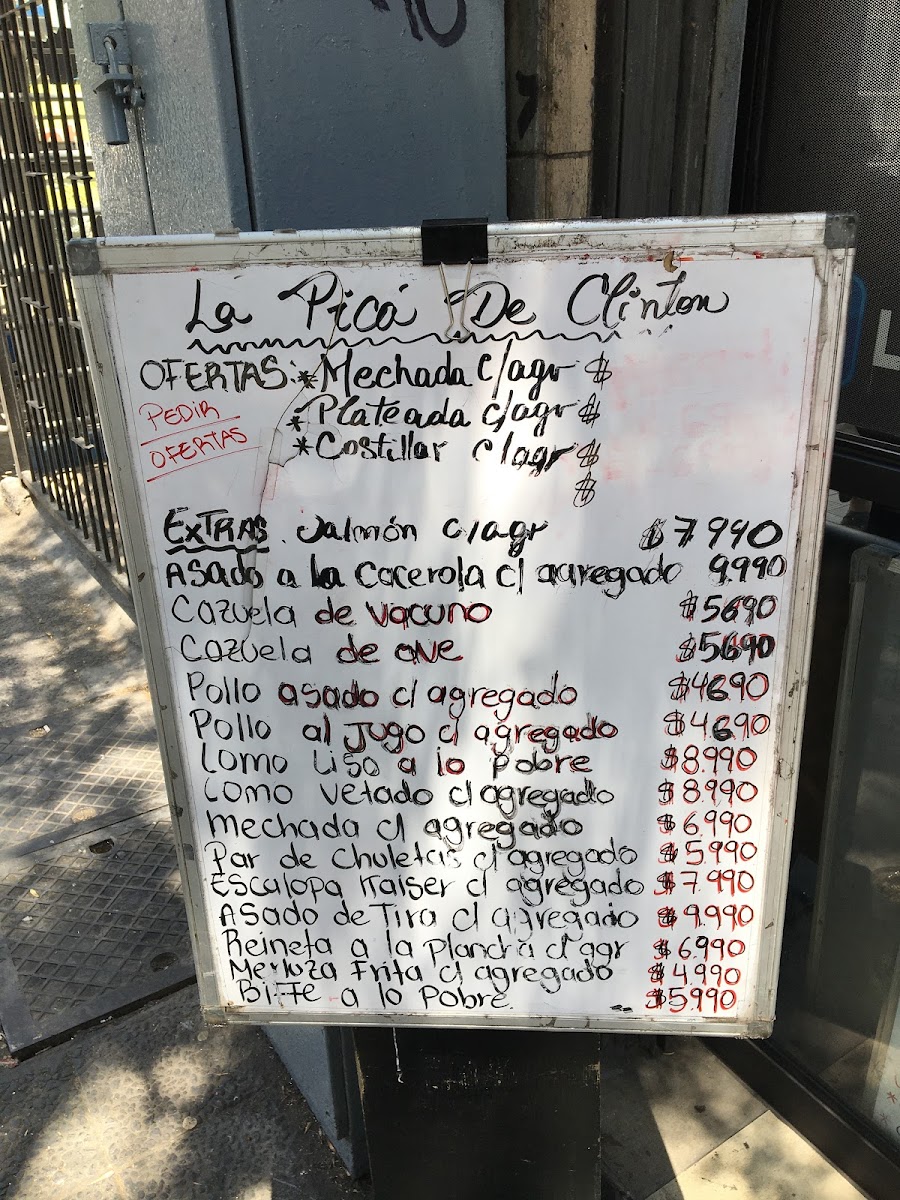 La Picá De Clinton
OFERTAS: * Mechada c/agr $
PEDIR * Plateada c/agr $
OFERTAS * Costillar c/agr $
$
EXTRAS. Salmón c/agr $7.990
Asado a la cacerola c/ agregado 9.990
Cazuela de vacuno $5690
Cazuela de ave $5690
Pollo asado c/ agregado $4690
Pollo al Jugo c/ agregado $4.690
Lomo Liso a lo pobre $8.990
Lomo vetado c/ agregado $8.990
Mechada c/ agregado $6.990
Par de chuletas c/ agregado $5.990
Escalopa Kaiser c/ agregado $7.990
Asado de Tira c/ agregado $9.990
Reineta a la plancha c/ agr $6.990
Merluza Frita c/ agregado $4.990
Bife a lo Pobre $5.990